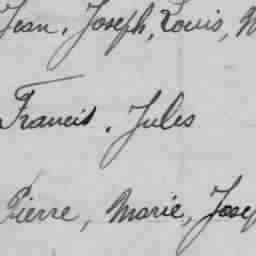 Jean, Joseph, Louis,
Francis, Jules
Pierre, Marie,